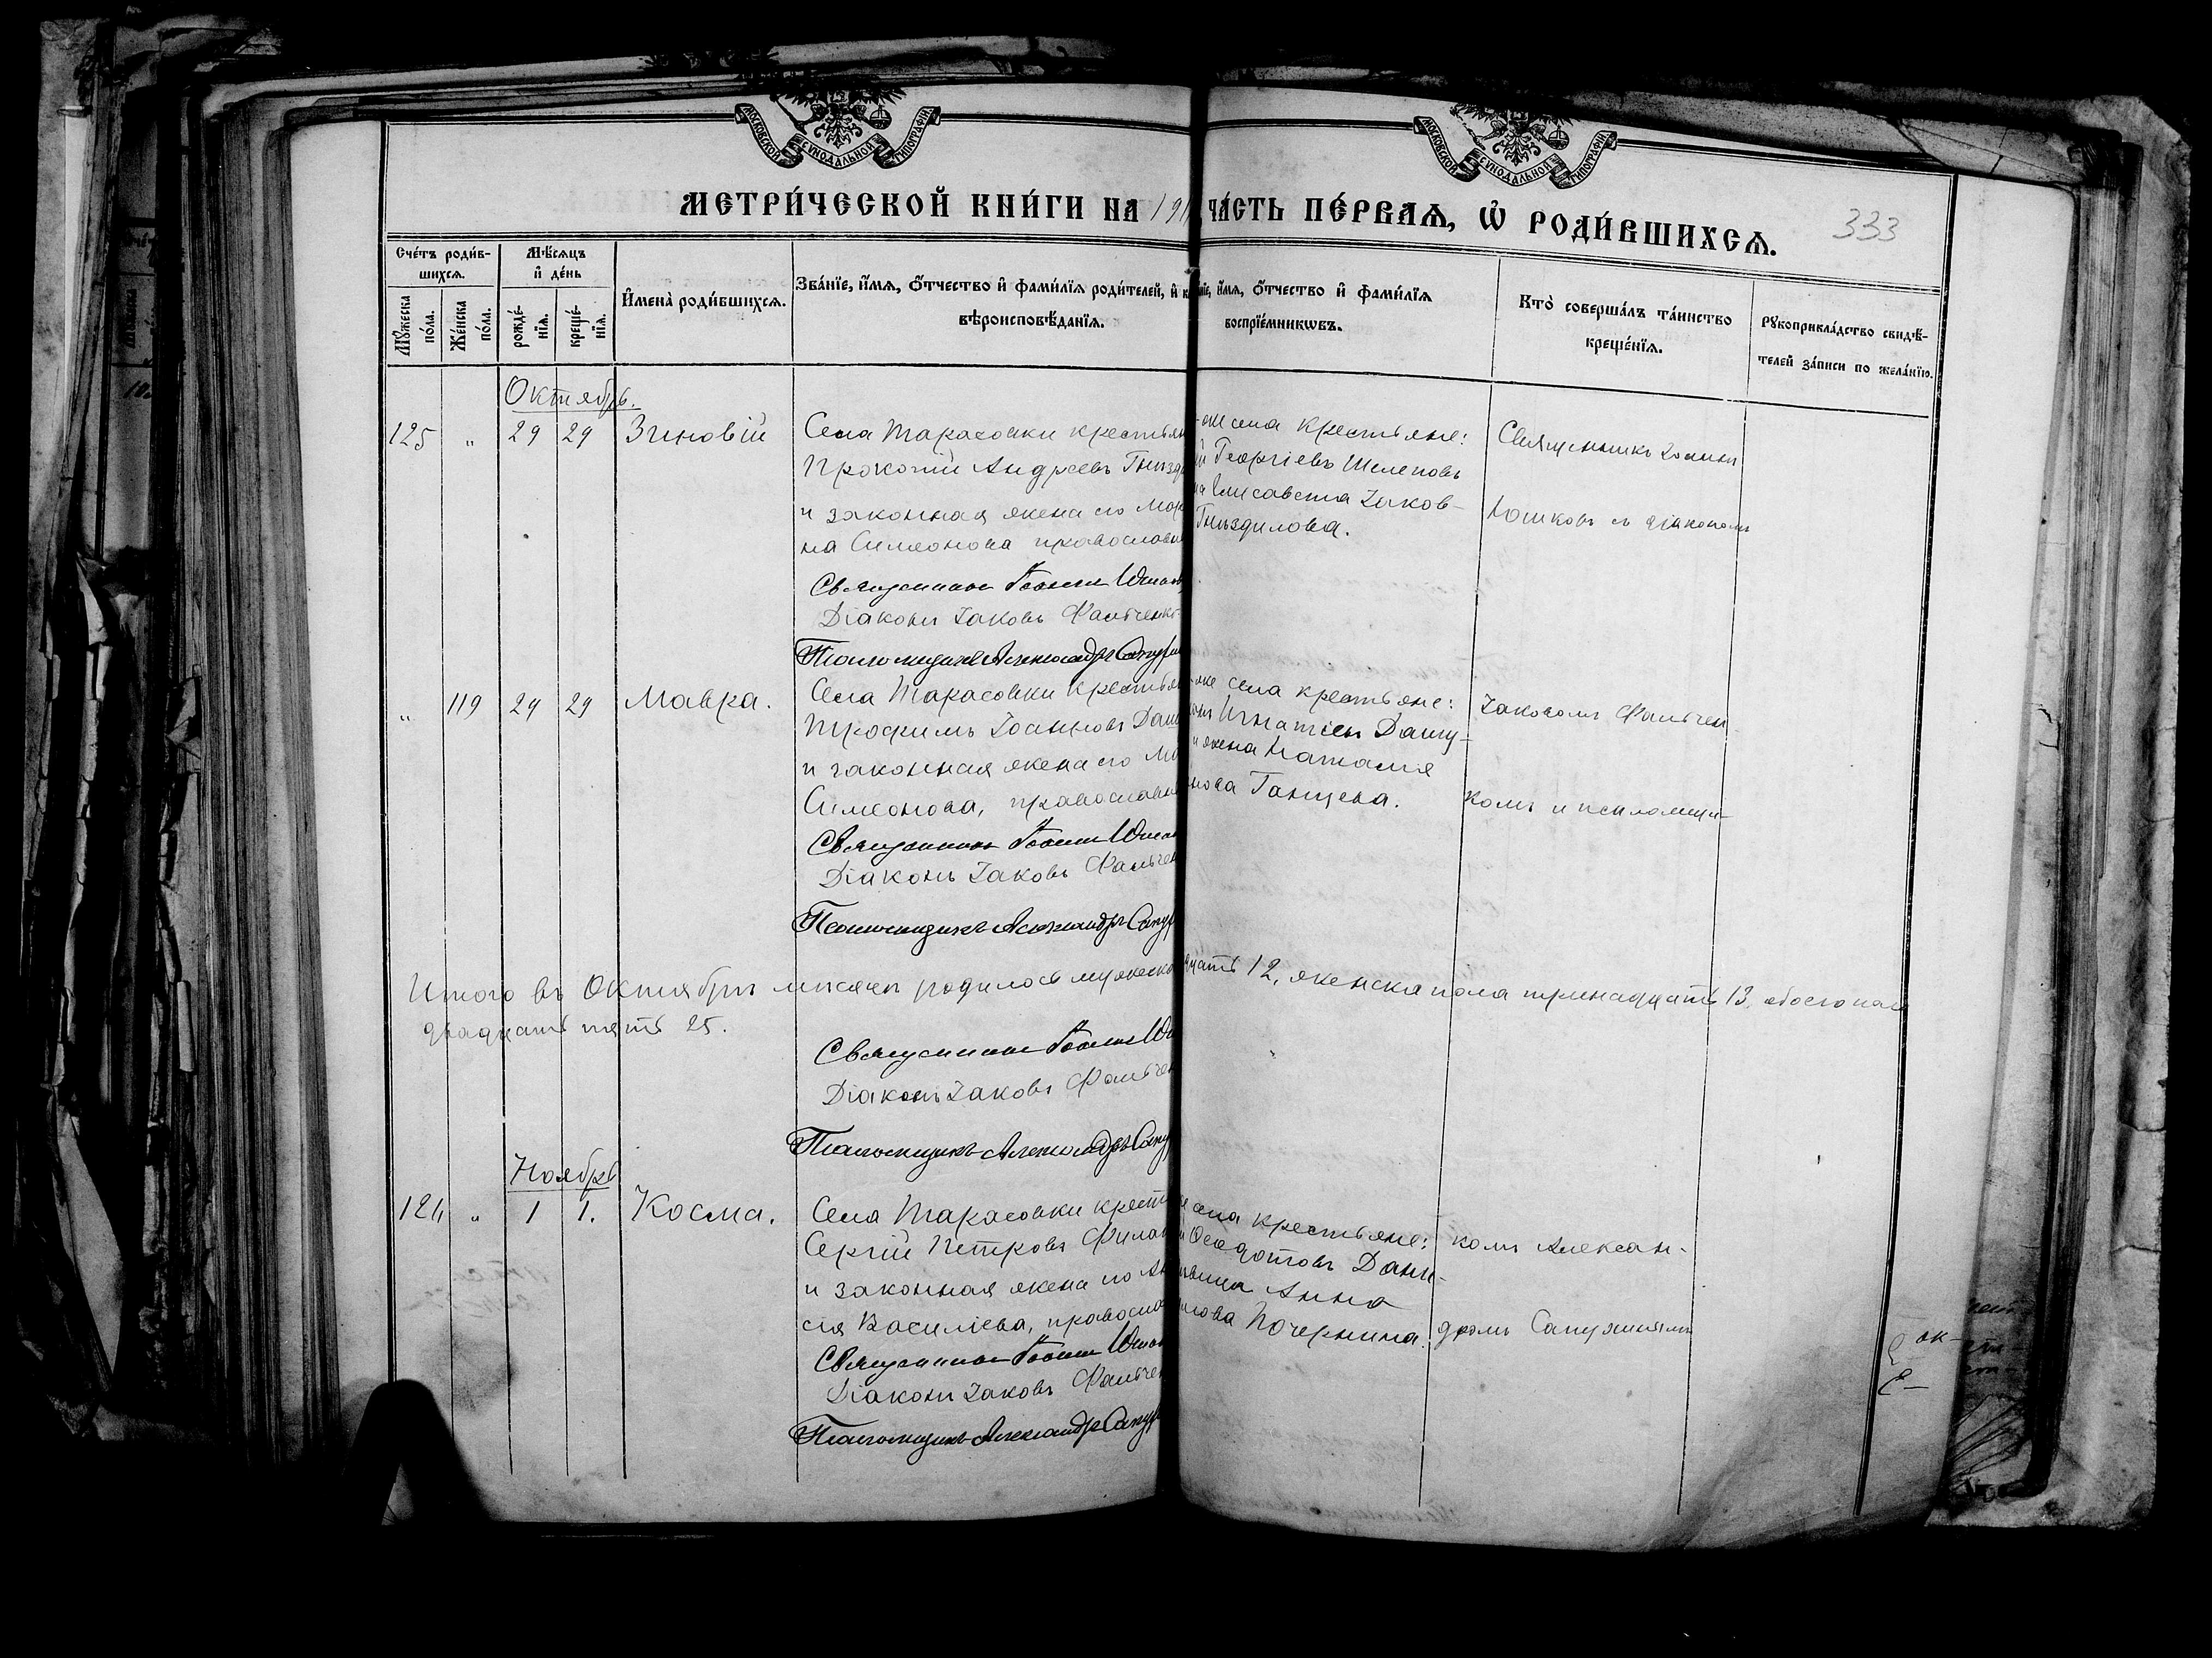 МОСКОВСКОЙ СУНОДАЛЬНОЙ ТИПОГРАФІИ
МОСКОВСКОЙ СУНОДАЛЬНОЙ ТИПОГРАФІИ
МЕТРИ́ЧЕСКОЙ КНИ́ГИ НА 191 ЧА́СТЬ ПЕ́РВАѦ, Ѽ РОДИ́ВШИХСѦ.
333
Сче́тъ роди́в-
шихсѧ.
Мꙋ́жеска по́ла.
Же́нска по́ла.
Мѣ́сѧцъ
и҆ де́нь
рожде́-
нїѧ.
креще́-
нїѧ.
И҆мена̀ роди́вшихсѧ.
Зва́нїе, и҆́мѧ, ѻ҆́тчество и҆ фами́лїѧ роди́телей, и҆
вѣроисповѣ́данїѧ.
и҆́мѧ, ѻ҆́тчество и҆ фами́лїѧ
воспрїе́мникѡвъ.
Кто̀ соверша́лъ та́инство
креще́нїѧ.
Рꙋкоприкла́дство свидѣ́-
телей за́писи по жела́нїю.
Октябрь.
125 " 29 29 Зиновій
Села Тарасовки крестьян
Прокопій Андреевъ Гнѣзд
и законная жена его Мар
на Симеонова православн
Священникъ Іоаннъ
Діаконъ Іаковъ Фальченко
Псаломщикъ Александръ Сапу
села крестьяне:
Георгіевъ Шелеповъ
Елисавета Іаков-
Гнѣздилова.
Священникъ Іоаннъ
съ діакономъ
" 119 29 29 Мавра.
Села Тарасовки крестьян
Трофимъ Іоанновъ
и законная жена его
Симеонова, православн
Священникъ Іоаннъ
Діаконъ Іаковъ Фальчен
Псаломщикъ Александръ Сапу
же села крестьяне:
Игнатіевъ
жена Наталія
нова Ганцева.
Іаковомъ Фальчен
комъ и псаломщи-
Итого въ Октябрѣ мѣсяцѣ родилось мужеска
цать 12, женска пола тринадцать 13, обоего пола
двадцать пять 25.
Священникъ Іоаннъ
Діаконъ Іаковъ Фальчен
Псаломщикъ Александръ Сапу
Ноябрь
126 " 1 1. Косма.
Села Тарасовки крест
Сергій Петровъ Филат
и законная жена его
сія Василіева, правосла
Священникъ Іоаннъ
Діаконъ Іаковъ Фальчен
Псаломщикъ Александръ Сапу
села крестьяне:
Ѳеодотовъ Дани-
Анна
нова Почернина.
комъ Алексан-
дромъ